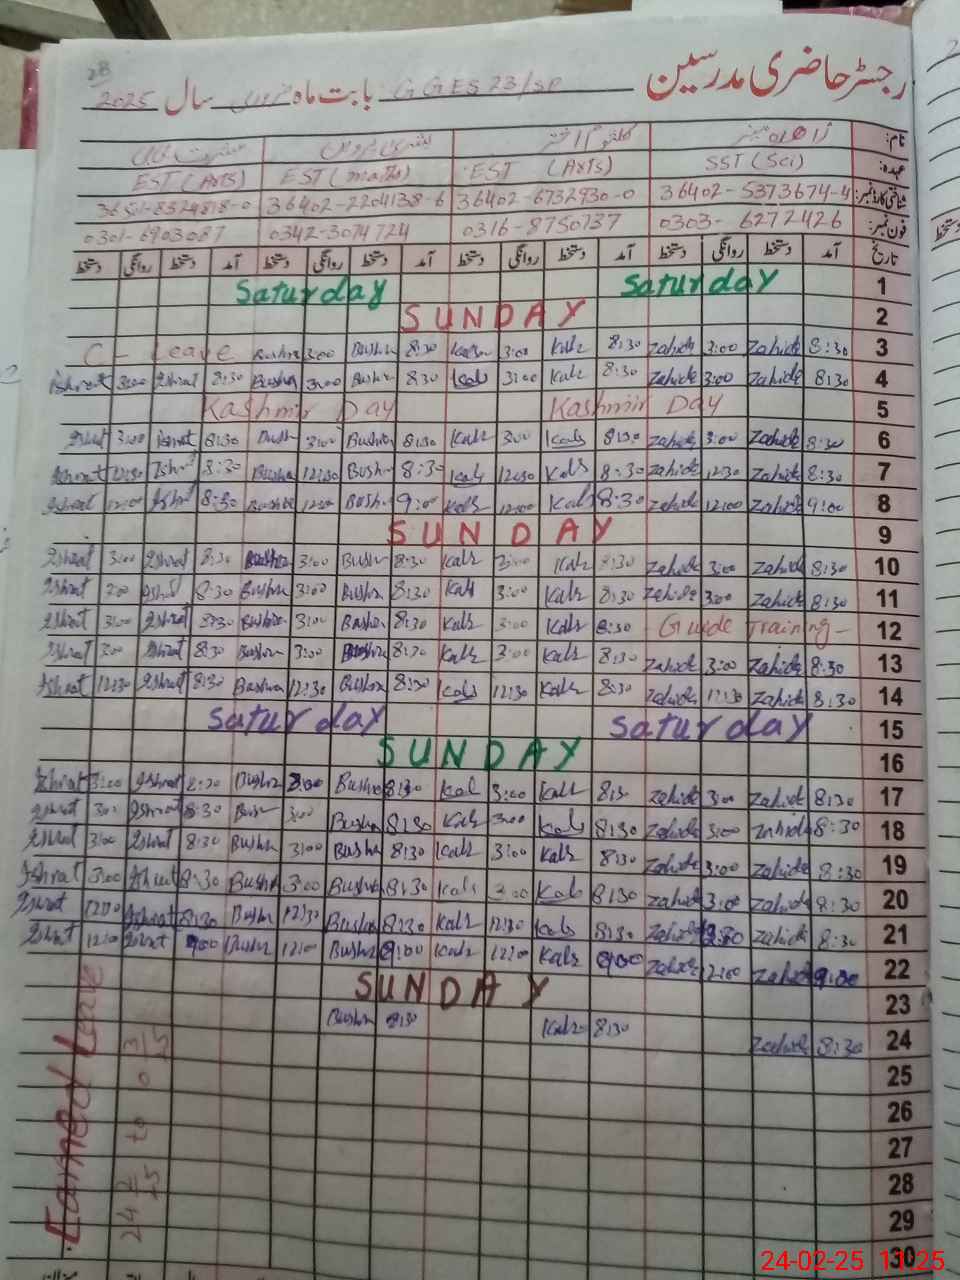 رجسٹر حاضری مدرسین GGES 23/SP بابت ماہ سال 2025
28
نام:
عہدہ: SST (Sci) EST (Arts) EST (maths) EST (Arts)
شناختی کارڈ نمبر: 36402-5373674-4 36402-6732930-0 36402-2204138-6
فون نمبر: 0303-6272426 0316-8750737 0342-3074724 0301-6903087
تاریخ آمد دستخط روانگی دستخط آمد دستخط روانگی دستخط آمد دستخط روانگی دستخط آمد دستخط روانگی دستخط
Saturday Saturday 1
SUNDAY 2
C - Leave Bushra 3:00 Bushra 8:30 Kals 3:00 Kals 8:30 Zahida 3:00 Zahida 8:30 3
Ishrat 3:00 Ishrat 8:30 Bushra 3:00 Bushra 8:30 Kals 3:00 Kals 8:30 Zahida 3:00 Zahida 8:30 4
Kashmir Day Kashmir Day 5
Ishrat 3:00 Ishrat 8:30 Bushra 3:00 Bushra 8:30 Kals 3:00 Kals 8:30 Zahida 3:00 Zahida 8:30 6
Ishrat 12:30 Ishrat 8:30 Bushra 12:30 Bushra 8:30 Kals 12:30 Kals 8:30 Zahida 12:30 Zahida 8:30 7
Ishrat 12:00 Ishrat 8:30 Bushra 12:00 Bushra 9:00 Kals 12:00 Kals 8:30 Zahida 12:00 Zahida 9:00 8
SUNDAY 9
Ishrat 3:00 Ishrat 8:30 Bushra 3:00 Bushra 8:30 Kals 3:00 Kals 8:30 Zahida 3:00 Zahida 8:30 10
Ishrat 3:00 Ishrat 8:30 Bushra 3:00 Bushra 8:30 Kals 3:00 Kals 8:30 Zahida 3:00 Zahida 8:30 11
Ishrat 3:00 Ishrat 8:30 Bushra 3:00 Bushra 8:30 Kals 3:00 Kals 8:30 - Guide Training - 12
Ishrat 3:00 Ishrat 8:30 Bushra 3:00 Bushra 8:30 Kals 3:00 Kals 8:30 Zahida 3:00 Zahida 8:30 13
Ishrat 12:30 Ishrat 8:30 Bushra 12:30 Bushra 8:30 Kals 12:30 Kals 8:30 Zahida 12:30 Zahida 8:30 14
Saturday Saturday 15
SUNDAY 16
Ishrat 3:00 Ishrat 8:30 Bushra 3:00 Bushra 8:30 Kals 3:00 Kals 8:30 Zahida 3:00 Zahida 8:30 17
Ishrat 3:00 Ishrat 8:30 Bushra 3:00 Bushra 8:30 Kals 3:00 Kals 8:30 Zahida 3:00 Zahida 8:30 18
Ishrat 3:00 Ishrat 8:30 Bushra 3:00 Bushra 8:30 Kals 3:00 Kals 8:30 Zahida 3:00 Zahida 8:30 19
Ishrat 3:00 Ishrat 8:30 Bushra 3:00 Bushra 8:30 Kals 3:00 Kals 8:30 Zahida 3:00 Zahida 8:30 20
Ishrat Ishrat 8:30 Bushra 12:30 Bushra 8:30 Kals 12:30 Kals 8:30 Zahida Zahida 8:30 21
Ishrat 12:00 Ishrat 9:00 Bushra 12:00 Bushra 9:00 Kals 12:00 Kals 9:00 Zahida 12:00 Zahida 9:00 22
SUNDAY 23
Bushra 8:30 Kals 8:30 Zahida 8:30 24
25
26
27
28
29
30
Earned Leave
24 2/25 to 0 3/25
24-02-25 11:25